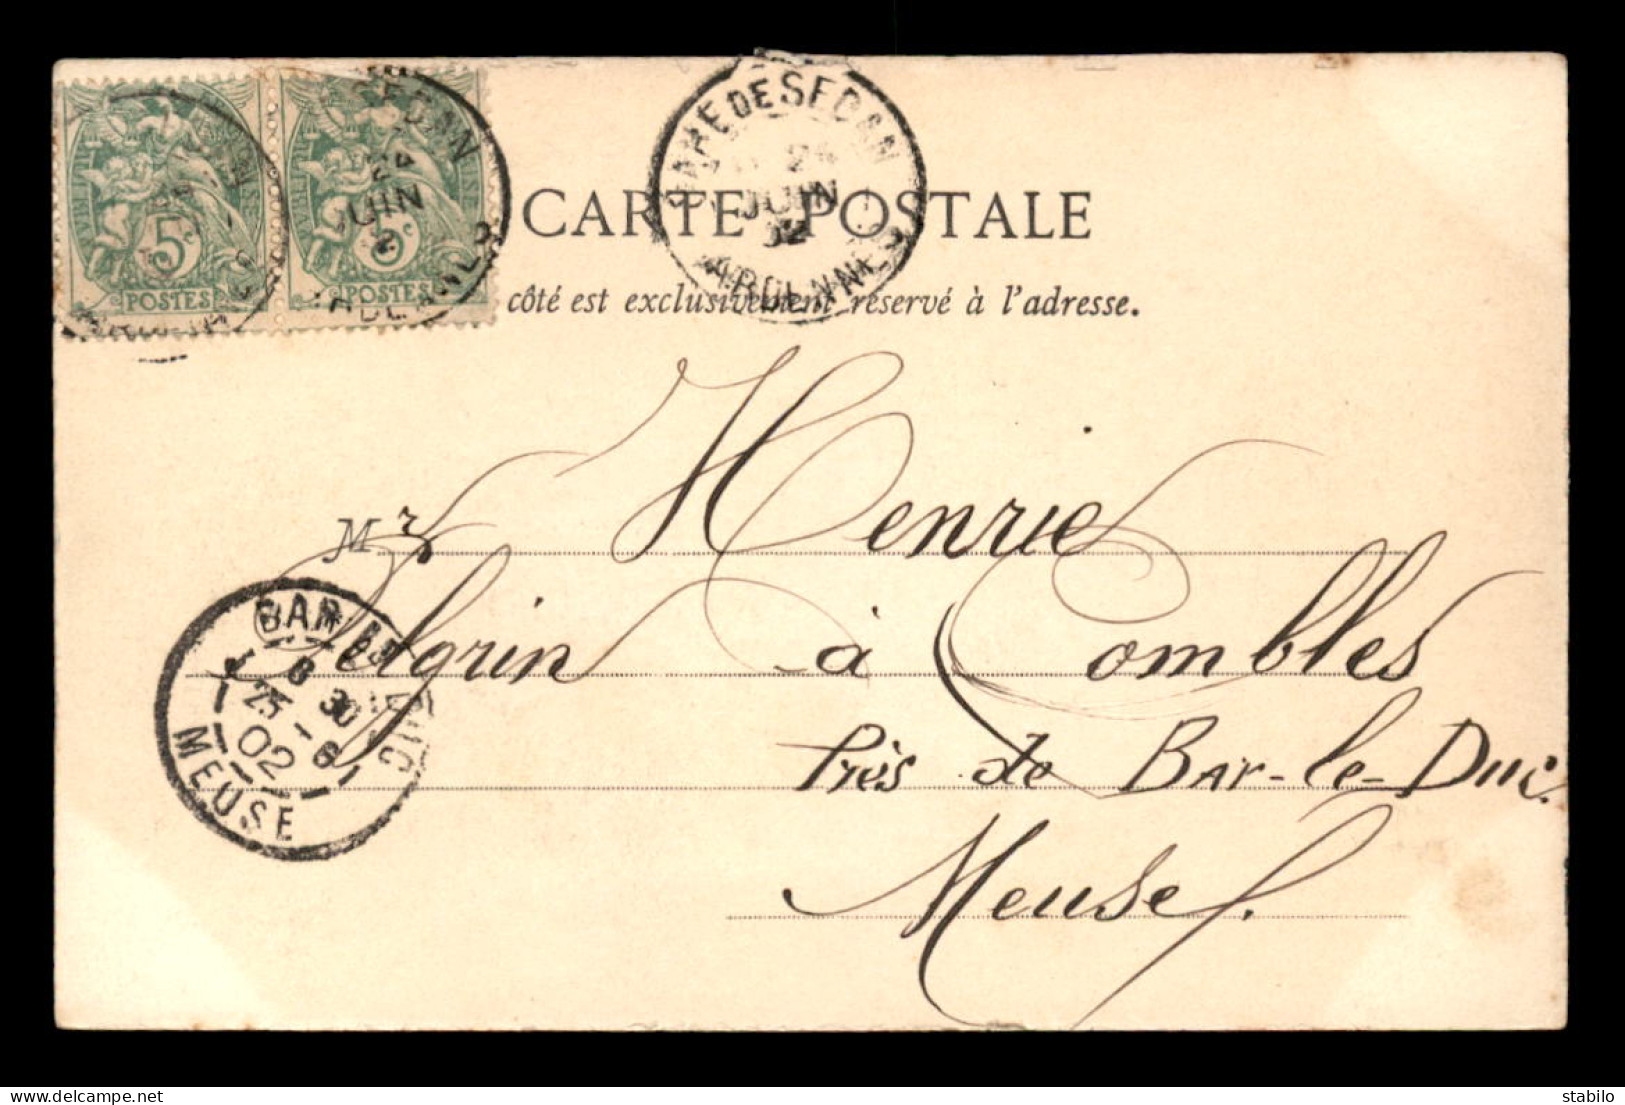 5c 5c
POSTES POSTES
SEDAN
24
JUIN
GARE DE SEDAN
24
JUIN
02
ARDENNES
CARTE POSTALE
côté est exclusivement réservé à l'adresse.
Mr Henrie
à Combles
Près de Bar-le-Duc.
Meuse.
BAR LE DUC
8 30
25 - 6
02
MEUSE
www.delcampe.net
stabilo